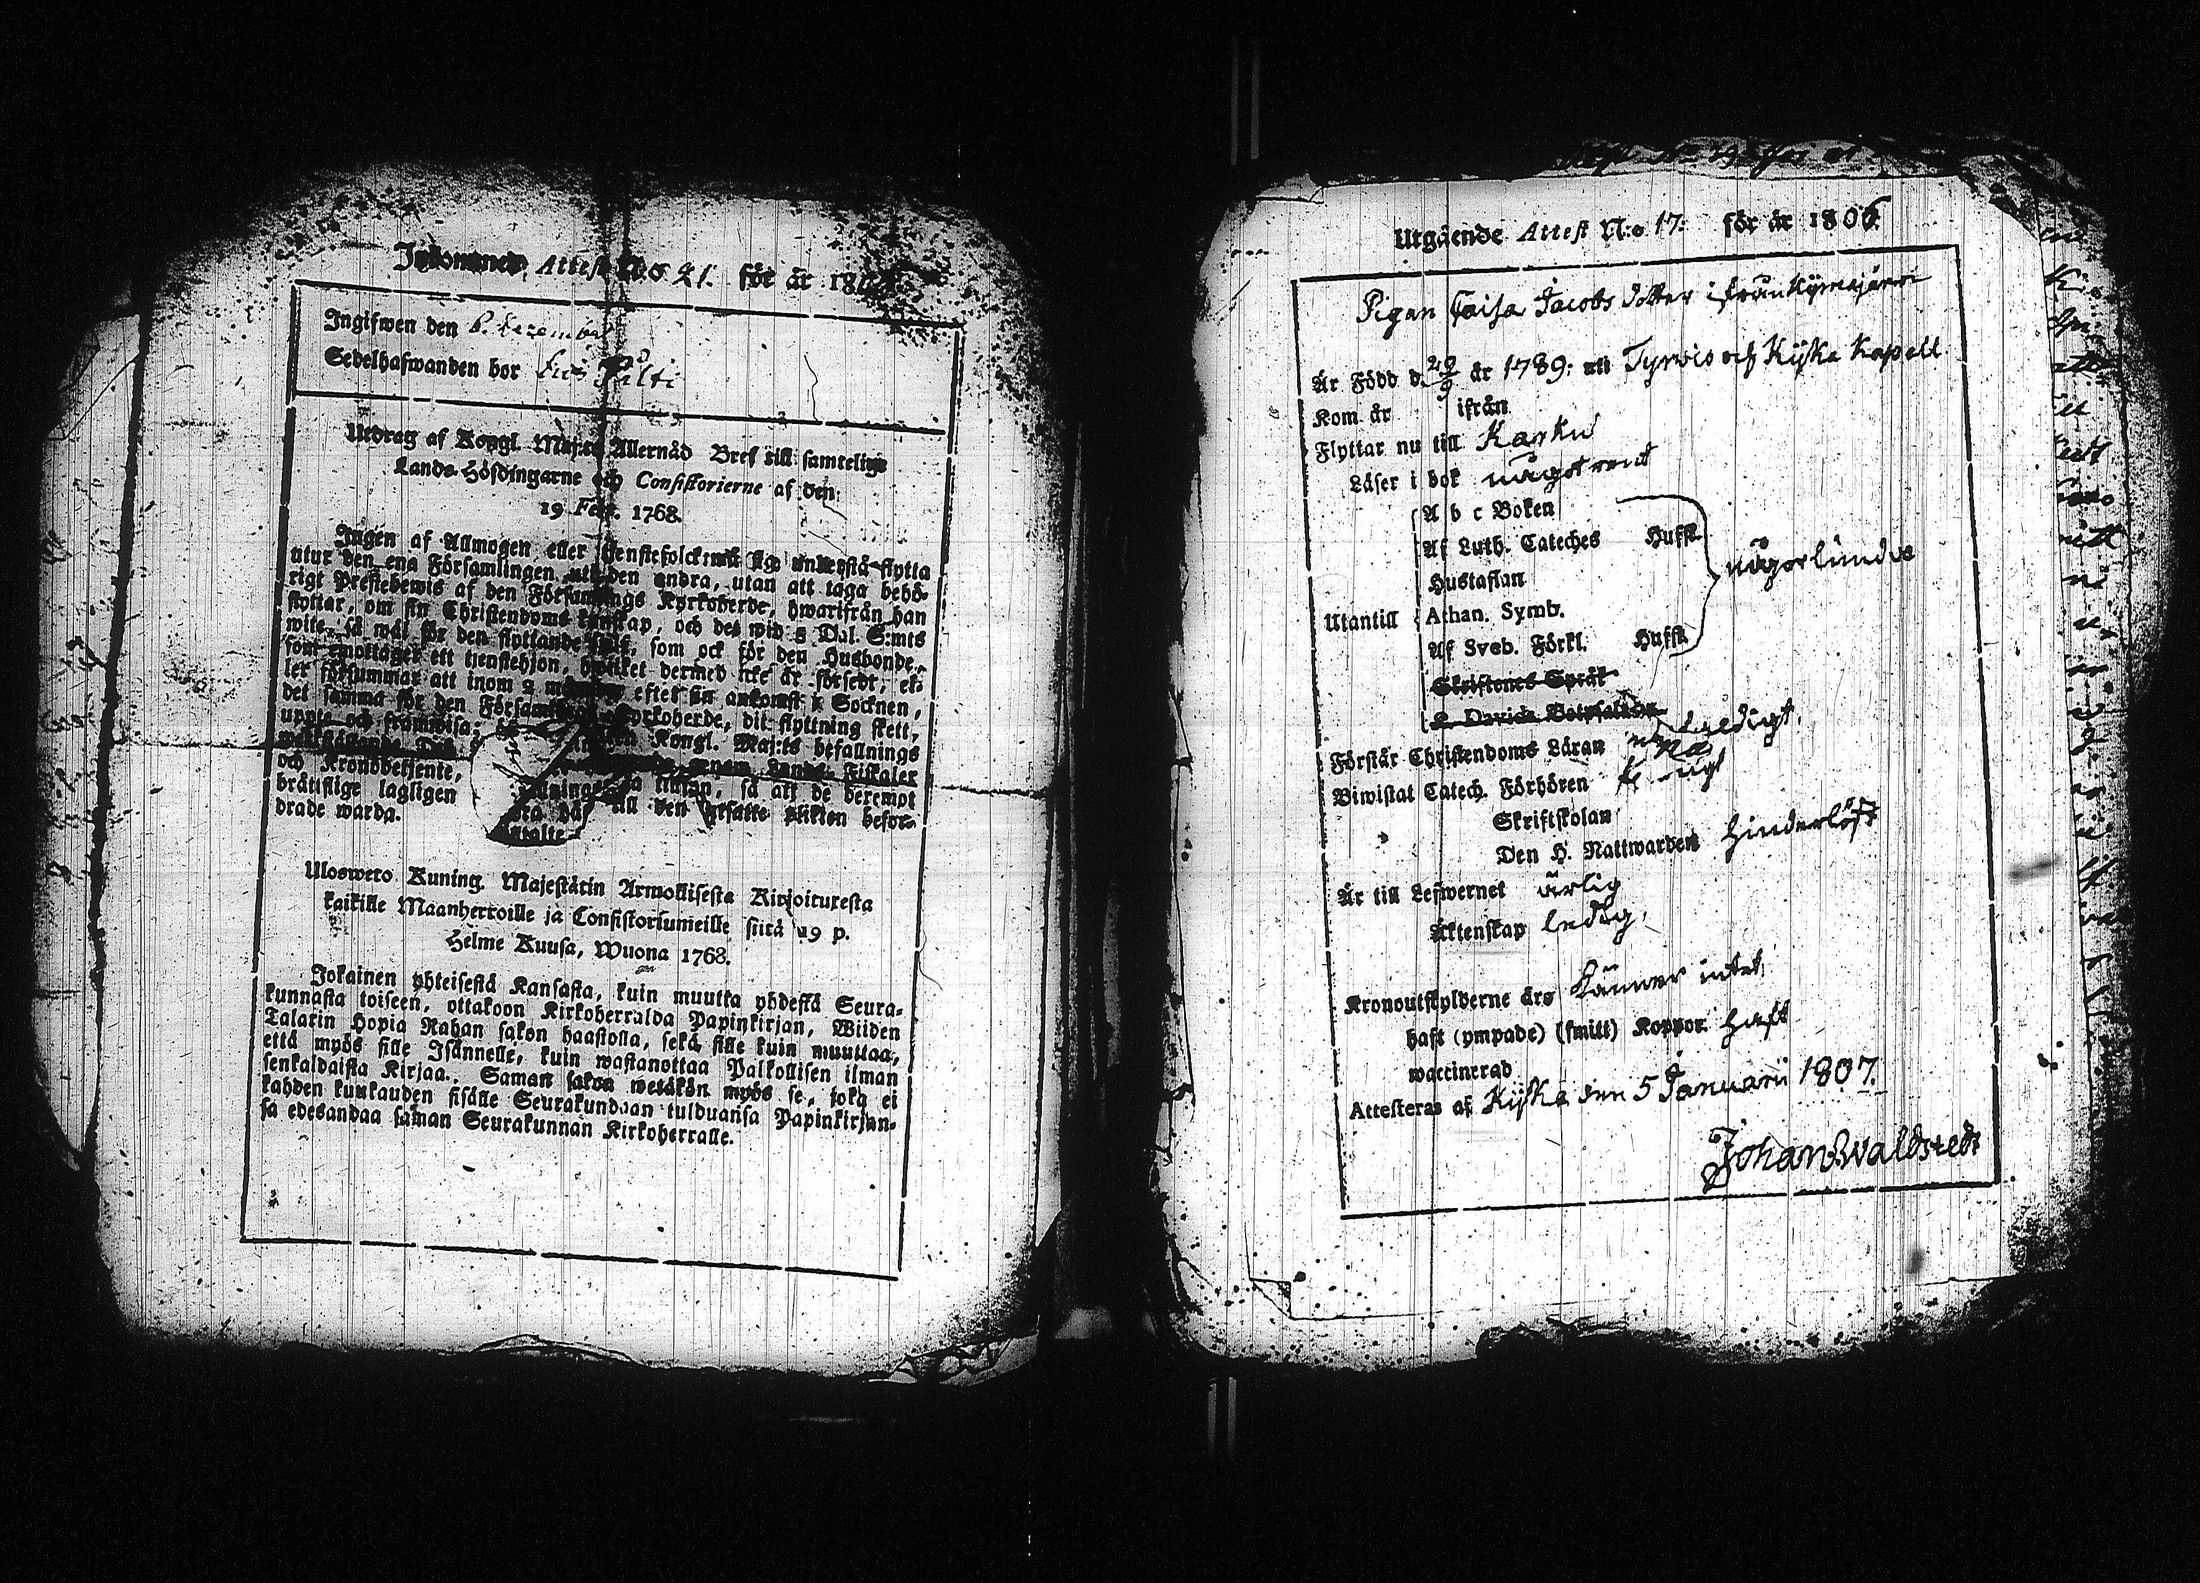 Inkommen Attest N:o 21. för år 180
Ingifwen den 8. Decemb
Sedelhafwanden bor hos Pilti
Utdrag af Kongl. Maj:ts Allernåd Bref till samtelige
Lands-Höfdingarne och Consistorierne af den
19 Febr. 1768.
Ingen af Allmogen eller tienstefolck må sig understå flytta
utur den ena Församlingen uti den andra, utan att taga behö-
rigt Prestebewis af den Församlings Kyrkoherde, hwarifrån han
flyttar, om sin Christendoms kunskap, och det wid 5 Dal. S:mts
wite, så wäl för den flyttande sielf, som ock för den Husbonde,
som emottager ett tienstehjon, hwilket dermed icke är försedt, el-
ler försummar att inom 2 månader efter sin ankomst i Socknen,
det samma för den Församlings Kyrkoherde, dit flyttning skett,
uppte och framwisa; Kongl. Maj:ts befallnings
werkställande Lands-Fiskaler
och Kronobetjente, tillsyn, så att de deremot
bråttslige lagligen till den utsatte plikten befor-
drade warda.
Ulosweto Kuning. Majestätin Armollisesta Kirjoituxesta
kaikille Maanherroille ja Consistoriumeille siitä 19 p.
Helme Kuusa, Wuona 1768.
Jokainen yhteisestä Kansasta, kuin muutta yhdestä Seura-
kunnasta toiseen, ottakoon Kirkoherralda Papinkirjan, Wiiden
Talarin Hopia Rahan sakon haastolla, sekä sille kuin muuttaa,
että myös sille Isännelle, kuin wastanottaa Palkollisen ilman
senkaldaista Kirjaa. Saman sakon wetäkön myös se, joka ei
kahden kuukauden sisälle Seurakundaan tulduansa Papinkirjan-
sa edesandaa saman Seurakunnan Kirkoherralle.
Utgående Attest N:o 17: för år 1806.
Pigan Caisa Jacobs dotter ifrån Kymejärwi
Är Född d. 29/9 år 1789: uti Tyrwis och Kijka Kapell.
Kom år ifrån
Flyttar nu till Karku
Läser i bok något rent
A b c Boken
Af Luth. Cateches Hufst.
Hustaflan någorlunda
Utantill Athan. Symb.
Af Sveb. Förkl. Hufst.
Skriftenes Språk
Davids Botpsalmer
Förstår Christendoms Läran
Biwistat Catech. Förhören
Skriftskolan
Den H. Nattwarden hinderlöst
Är till Lefwernet ärlig
Äktenskap ledig.
Kronoutskylderne äro känner intet
haft (ympade) (smitt) Koppor haft
waccinerad
Attesteras af Kijka den 5 Januarii 1807.
Johan Waldstedt